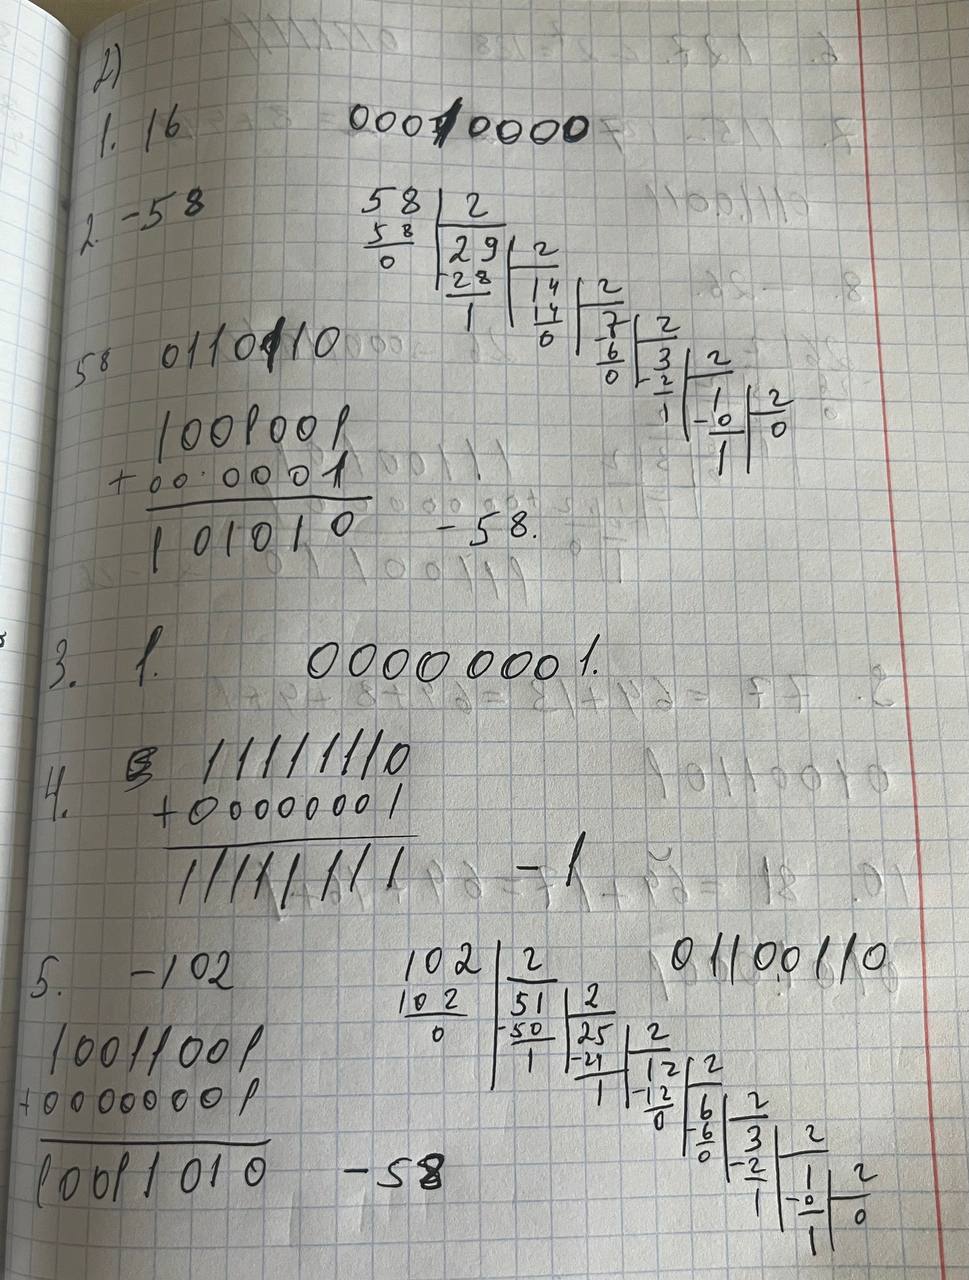 2)
1. 16 00010000
2. -58
58 2
58 29 2
0 -28 14 2
1 14 7 2
0 6 3 2
0 -2 1 2
1 -0 0
1
58 0110110
1001001
+00.0001
101010 -58.
3. 1. 00000001.
4. 11111110
+00000001
11111111 -1
5. -102 01100110
102 2
102 51 2
0 -50 25 2
1 -24 12 2
1 -12 6 2
0 -6 3 2
0 -2 1 2
1 -0 0
1
10011001
+00000001
10011010 -58